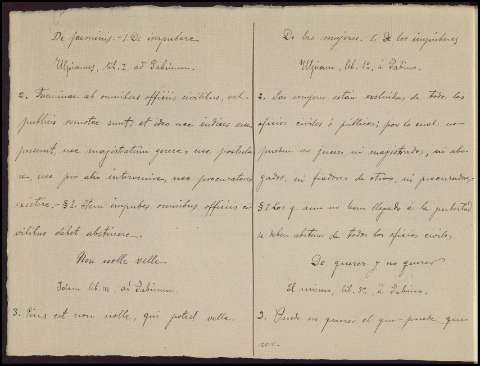 De feminis.- 1. De impubere
Ulpianus, lib. I ad Sabinum.
2. Feminae ab omnibus officiis civilibus, vel
publicis remotae sunt, et ideo nec iudices esse
possunt, nec magistratum gerere, nec postula
re, nec pro alio intervenire, nec procuratores
existere.- § 1. Item impubes omnibus officiis ci
vilibus debet abstinere.
Non nolle velle
Idem lib. ad Sabinum.
3. Eius est non nolle, qui potest velle.
De las mujeres. 1. De los impúberes
Ulpiano, lib. 1º, á Sabino.
2. Las mujeres están excluidas de todos los
oficios civiles ó públicos; por lo cual no
pueden ser jueces, ni magistrados, ni abo-
gados, ni fiadores de otros, ni procuradores.-
§ 1. Los q. aun no han llegado á la pubertad
se deben abstener de todos los oficios civiles.
De querer y no querer
El mismo, lib. 3º, á Sabino.
3. Puede no querer el que puede que-
rer.